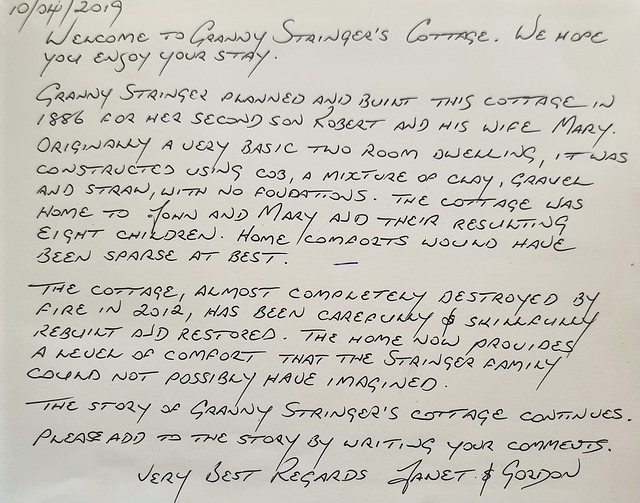 10/04/2019
WELCOME TO GRANNY STRINGER'S COTTAGE. WE HOPE
YOU ENJOY YOUR STAY.
GRANNY STRINGER PLANNED AND BUILT THIS COTTAGE IN
1886 FOR HER SECOND SON ROBERT AND HIS WIFE MARY.
ORIGINALLY A VERY BASIC TWO ROOM DWELLING, IT WAS
CONSTRUCTED USING COB, A MIXTURE OF CLAY, GRAVEL
AND STRAW, WITH NO FOUDATIONS. THE COTTAGE WAS
HOME TO JOHN AND MARY AND THEIR RESULTING
EIGHT CHILDREN. HOME COMFORTS WOULD HAVE
BEEN SPARSE AT BEST.
THE COTTAGE, ALMOST COMPLETELY DESTROYED BY
FIRE IN 2012, HAS BEEN CAREFULLY & SKILLFULLY
REBUILT AND RESTORED. THE HOME NOW PROVIDES
A LEVEL OF COMFORT THAT THE STRINGER FAMILY
COULD NOT POSSIBLY HAVE IMAGINED.
THE STORY OF GRANNY STRINGER'S COTTAGE CONTINUES.
PLEASE ADD TO THE STORY BY WRITING YOUR COMMENTS.
VERY BEST REGARDS JANET & GORDON